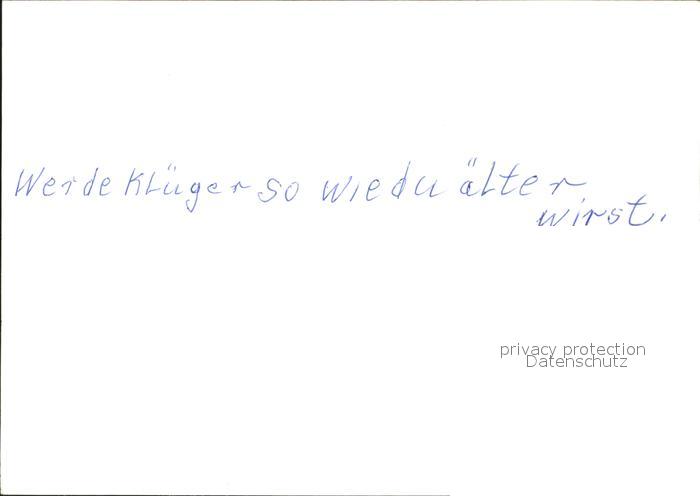 Werde Klüger so wie du älter
wirst.
privacy protection
Datenschutz